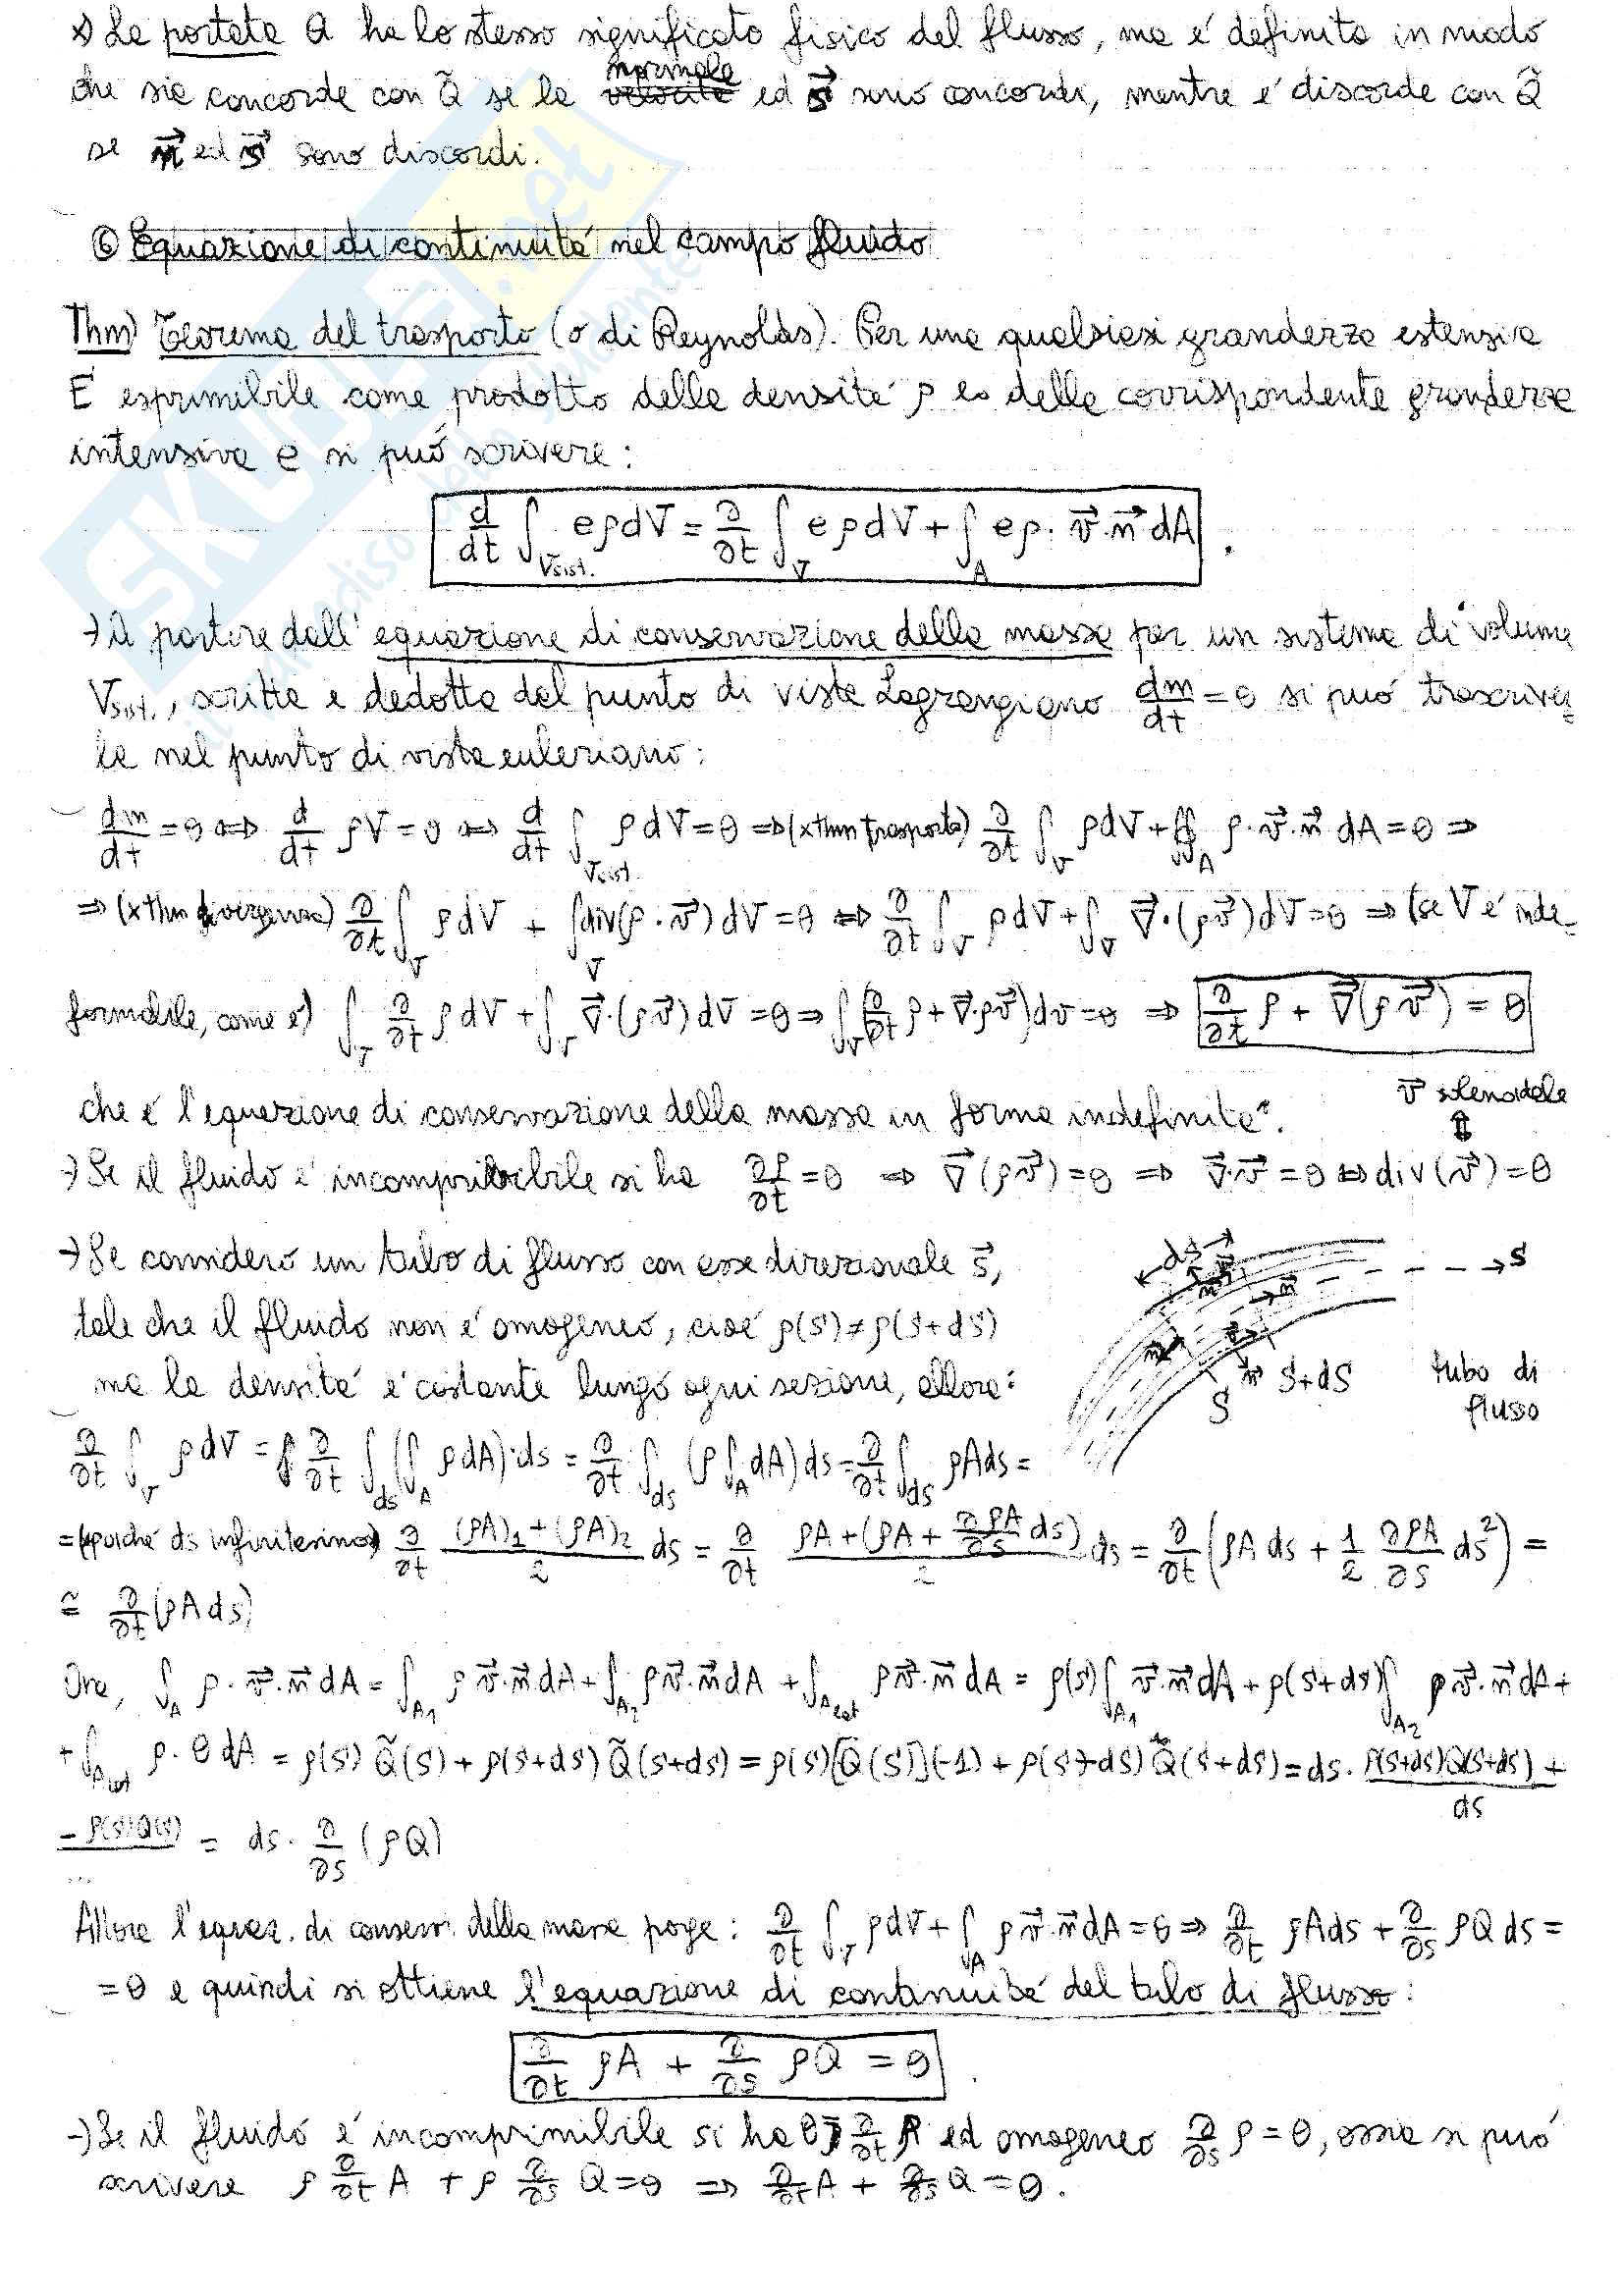 *) La portata Q ha lo stesso significato fisico del flusso, ma é definita in modo
che sia concorde con Q̃ se la normale ed s⃗ sono concordi, mentre é discorde con Q̃
se n⃗ ed s⃗ sono discordi.
⑥ Equazione di continuitá nel campo fluido
Thm) Teorema del trasporto (o di Reynolds). Per una qualsiasi grandezza estensiva
E esprimibile come prodotto della densitá ρ e della corrispondente grandezza
intensiva e si puó scrivere:
d/dt ∫_Vsist. eρdV = ∂/∂t ∫_V eρdV + ∫_A eρ · v⃗·n⃗ dA .
→ A partire dall'equazione di conservazione della massa per un sistema di volume
Vsist., scritta e dedotta dal punto di vista Lagrangiano dm/dt = 0 si puó trascriver=
la nel punto di vista euleriano:
dm/dt = 0 ⇔ d/dt ρV = 0 ⇔ d/dt ∫_Vsist. ρdV = 0 ⇒ (x thm trasporto) ∂/∂t ∫_V ρdV + ∯_A ρ·v⃗·n⃗ dA = 0 ⇒
⇒ (x thm divergenza) ∂/∂t ∫_V ρdV + ∫_V div(ρ·v⃗)dV = 0 ⇔ ∂/∂t ∫_V ρdV + ∫_V ∇⃗·(ρv⃗)dV = 0 ⇒ (se V é inde=
formabile, come é) ∫_V ∂/∂t ρdV + ∫_V ∇⃗·(ρv⃗)dV = 0 ⇒ ∫_V (∂/∂t ρ + ∇⃗·ρv⃗)dV = 0 ⇒ ∂/∂t ρ + ∇⃗(ρv⃗) = 0
che é l'equazione di conservazione della massa in forma indefinita.
v⃗ solenoidale
⇕
→ Se il fluido é incomprimibile si ha ∂ρ/∂t = 0 ⇒ ∇⃗(ρv⃗) = 0 ⇒ ∇⃗·v⃗ = 0 ⇔ div(v⃗) = 0
→ Se considero un tubo di flusso con asse direzionale s⃗,
tale che il fluido non é omogeneo, cioé ρ(s) ≠ ρ(s+ds)
ma la densitá é costante lungo ogni sezione, allora:
ds
n⃗
n⃗
s
n⃗
n⃗
S
S+dS
tubo di
flusso
∂/∂t ∫_V ρdV = ∂/∂t ∫_ds (∫_A ρdA)·ds = ∂/∂t ∫_ds (ρ∫_A dA)ds = ∂/∂t ∫_ds ρAds =
= (poiché ds infinitesimo) ∂/∂t ((ρA)₁ + (ρA)₂)/2 ds = ∂/∂t (ρA + (ρA + ∂ρA/∂s ds))/2 ds = ∂/∂t (ρA ds + 1/2 ∂ρA/∂s ds²) =
≅ ∂/∂t (ρA ds)
Ora, ∫_A ρ·v⃗·n⃗ dA = ∫_A₁ ρv⃗·n⃗dA + ∫_A₂ ρv⃗·n⃗dA + ∫_Alat ρv⃗·n⃗ dA = ρ(s)∫_A₁ v⃗·n⃗dA + ρ(s+ds)∫_A₂ ρv⃗·n⃗dA +
+ ∫_Alat ρ·0 dA = ρ(s) Q̃(s) + ρ(s+ds) Q̃(s+ds) = ρ(s)[Q(s)](-1) + ρ(s+ds) Q(s+ds) = ds · ρ(s+ds)Q(s+ds) + / ds
- ρ(s)Q(s) / ... = ds · ∂/∂s (ρQ)
Allora l'equaz. di conserv. della massa porge: ∂/∂t ∫_V ρdV + ∫_A ρv⃗·n⃗dA = 0 ⇒ ∂/∂t ρAds + ∂/∂s ρQ ds =
= 0 e quindi si ottiene l'equazione di continuitá del tubo di flusso:
∂/∂t ρA + ∂/∂s ρQ = 0 .
→ Se il fluido é incomprimibile si ha 0 = ∂/∂t ρ ed omogeneo ∂/∂s ρ = 0, ossia si puó
scrivere ρ ∂/∂t A + ρ ∂/∂s Q = 0 ⇒ ∂/∂t A + ∂/∂s Q = 0 .